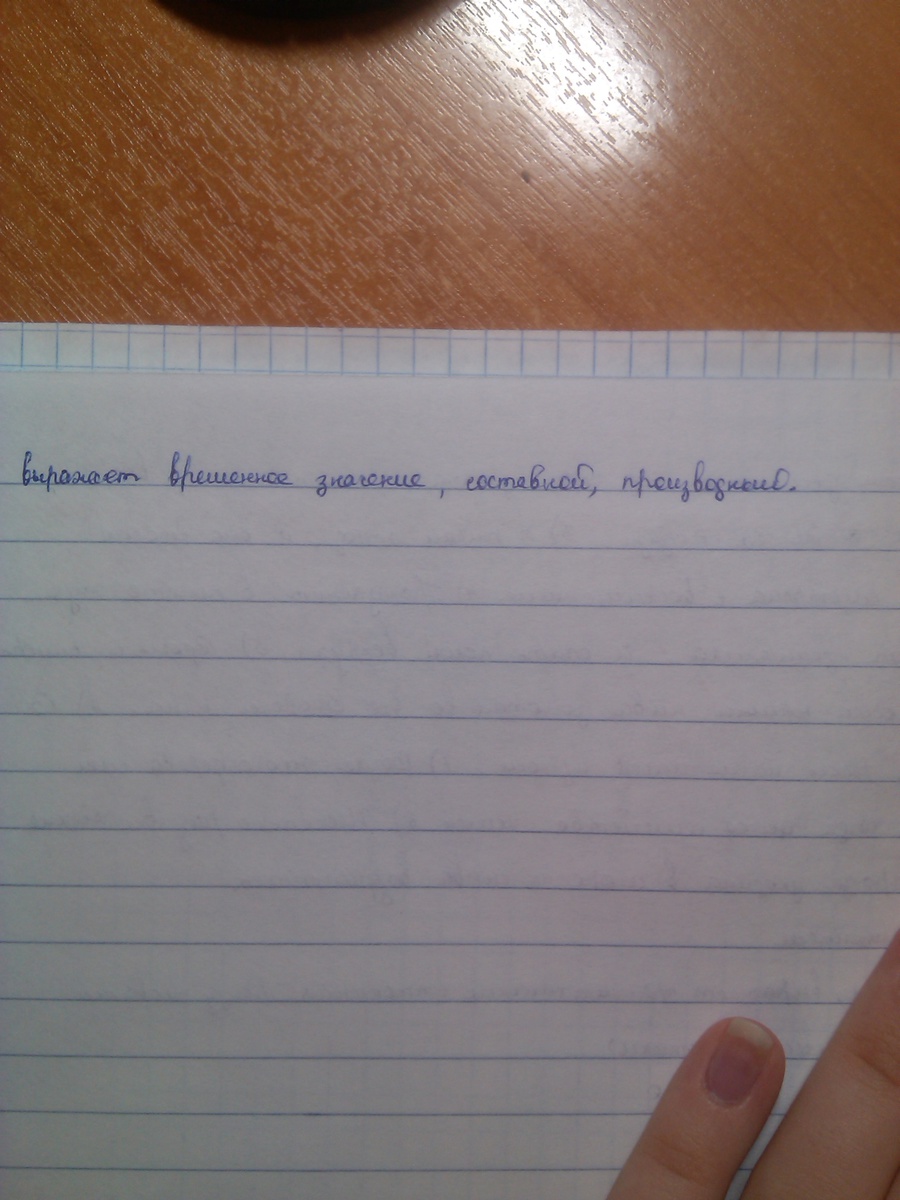 выражает временное значение, составной, производный.